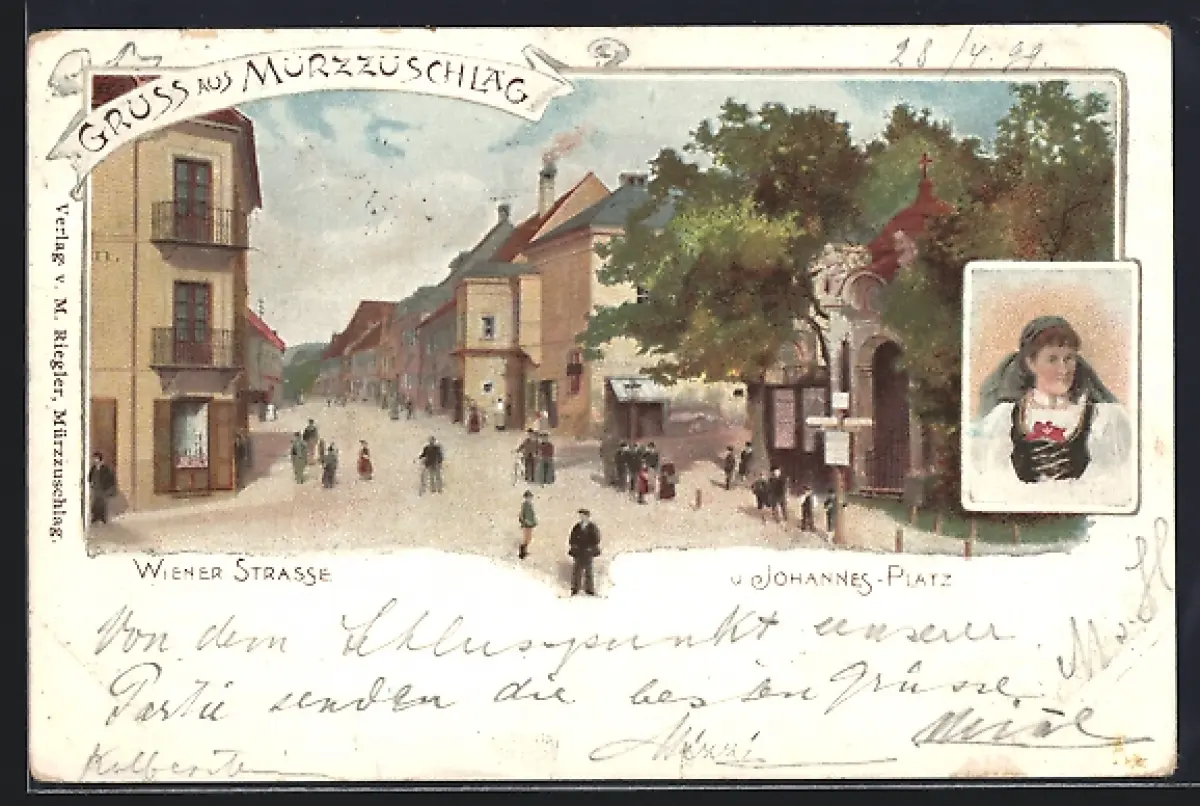 GRUSS AUS MÜRZZUSCHLAG
28/4.99.
Verlag v. M. Riegler, Mürzzuschlag.
WIENER STRASSE
U JOHANNES-PLATZ
Von dem Schlusspunkt unserer
Partie senden die besten Grüsse